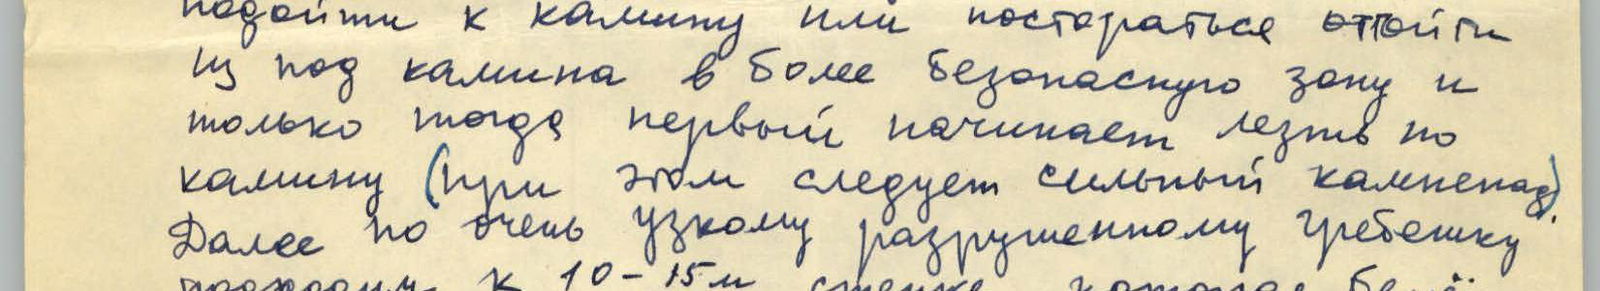 подойти к камину или постараться отойти
из под камина в более безопасную зону и
только тогда первый начинает лезть по
камину (при этом следует сильный камнепад).
Далее по очень узкому разрушенному гребешку
подходим к 10-15м стенке, которая